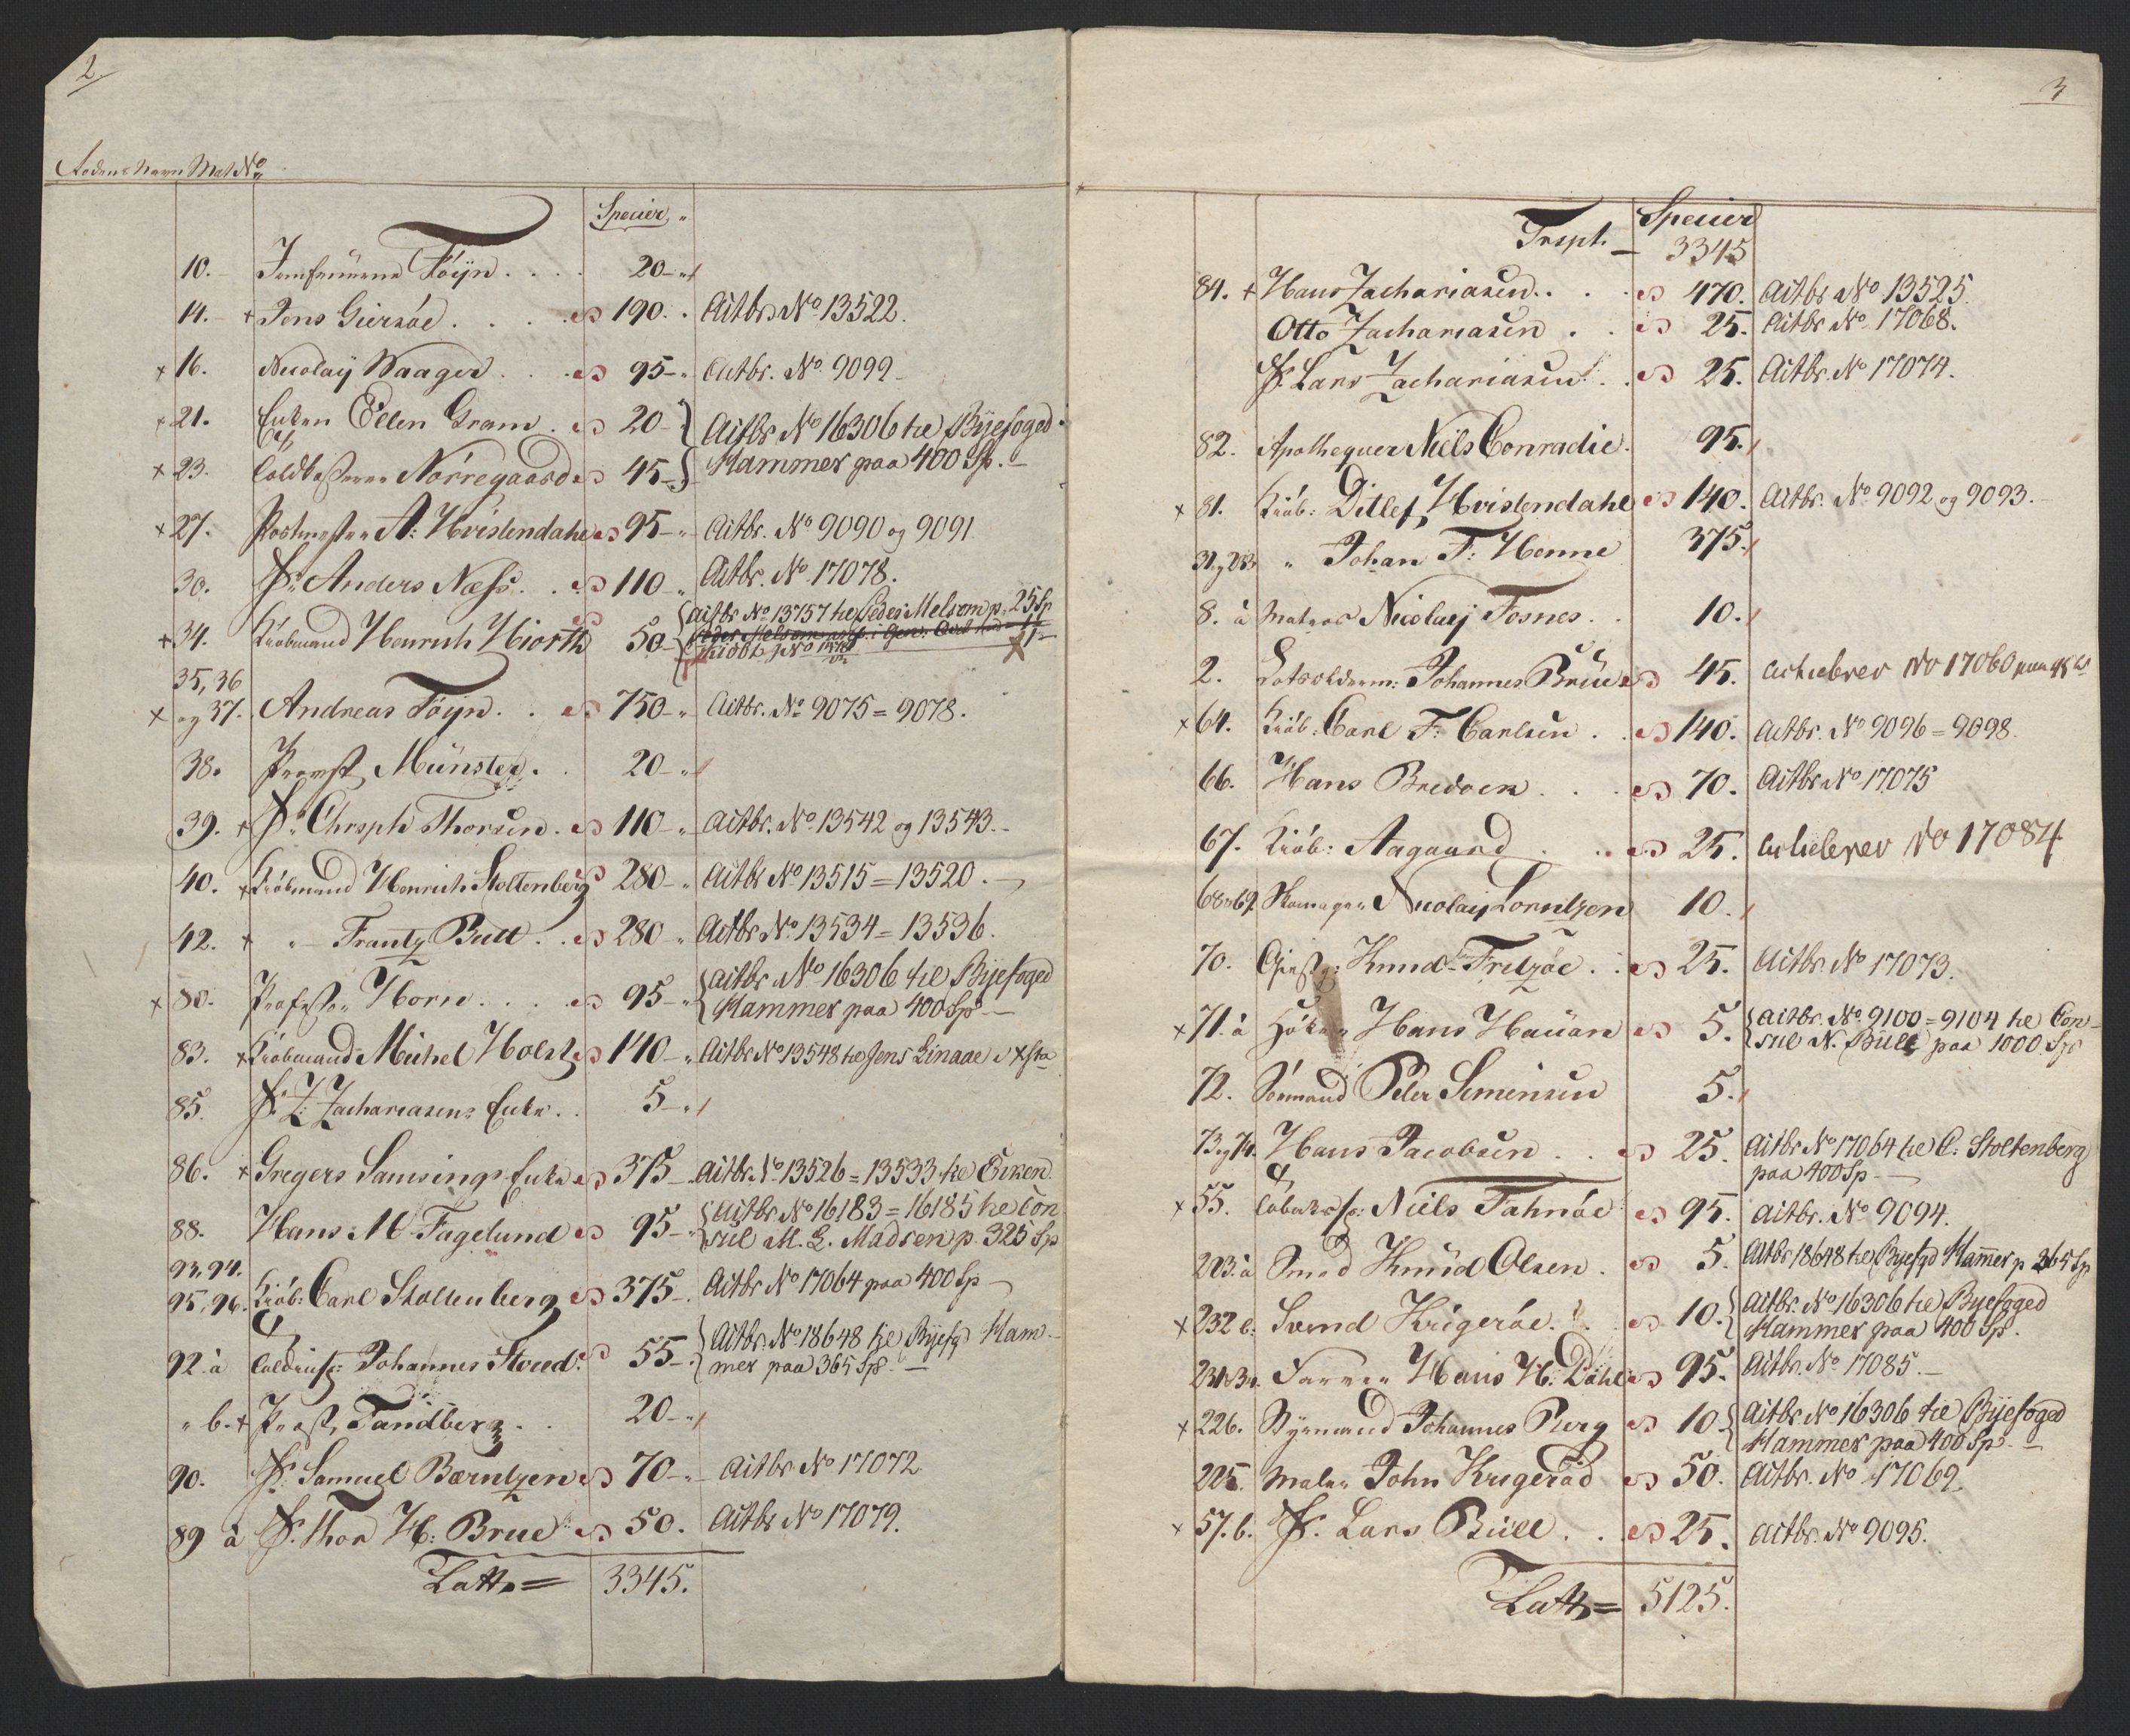 2
Mat No
Specier
10. Jomfruerne Föyn . . . 20
14. + Jens Giersöe . . . 190. Actbr. No 13522.
x 16. Nicolay Waager . . . 95 Actbr. No 9099
21. Enken Ellen Gram . 20 Actbr No 16306 til Byefoged
x 23. Nörregaard 45 Hammer paa 400 Sp.
x 27. Postmester A: Hvistendahl 95 Actbr. No 9090 og 9091
30. Sr. Anders Næss . . 110 Actbr. No 17078.
Actbr No 13757 til Peder Melsom p. 25 Sp
+ 34. Kiöbmand Henrich Hiorth 50
35, 36
x og 37. Andreas Föyn . . 750 Actbr. No 9075 = 9078.
38. Provst Münster . 20
39. + Sr. Chrsph Thorsen . 110 Actbr. No 13542 og 13543.
40. + Kiöbmand Henrich Stoltenberg 280 Actbr No 13515 = 13520.
42. + " Frantz Bull . . 280 Actbr No 13534 = 13536.
x 80. Professor Horn . . . 95 Actbr No 16306 til Byefoged
Hammer paa 400 Sp
83. + Kiöbmand Michel Holst 140 Actbr No 13548 til Jens Linaae
85. Sr. Z: Zachariasens Enke . . 5
86. + Gregers Samsings Enke 375 Actbr. No 13526 = 13533 til Enken
88. Hans M. Fagelund 95 Actbr No 16183 = 16185 til Con
sul M. L. Madsen p. 325 Sp
93, 94.
95, 96. Kiöb: Carl Stoltenberg 375 Actbr No 17064 paa 400 Sp
92 à Johannes Stoud: 55 Actbr. No 18648 til Byefg Ham-
mer paa 365 Sp.
" b. + Prost. Tandberg . . 20
90. Sr. Samuel Bærntzen 70 Actbr No 17072
89 à Sr. Thor H: Brue 50. Actbr No 17079.
Latts = 3345.
3
Specier
Trspt. 3345
84. + Hans Zachariasen . . . 470. Actbr No 13525.
Otto Zachariasen . . 25. Actbr No 17068.
Sr. Lars Zachariasen . . 25. Actbr. No 17074.
82. Apothequer Niels Conradie . 95.
x 81. Kiöb: Ditlef Hvistendahl 140. Actbr. No 9092 og 9093.
" Johan F: Henne 375.
8. à Matros Nicolay Fosnes . . 10.
2. Lotsolderm: Johannes Brue 45. Actiebrev No 17060
x 64. Kiöb: Carl F: Carlsen . . 140. Actbr. No 9096 = 9098.
66. Hans Bredoch . . . 70. Actbr No 17075
67. Kiöb: Aagaard . . . 25. Actiebrev No 17084
68 og 69. Skomager Nicolay Lorentzen 10.
70. Giestg: Knud Fritzöe . . 25. Actbr No 17073.
x 71. à Höker Hans Hauan 5. Actbr. No 9100 = 9104 til Con-
sul N. Bull paa 1000 Sp
72. Sömand Peter Simensen 5.
73 og 74. Hans Jacobsen . . 25. Actbr No 17064 til C: Stoltenberg
paa 400 Sp.
x 55. Niels Fahnöe 95. Actbr. No 9094.
223. à Smed Knud Olsen . 5. Actbr 18648 til Byefgd Hammer p 365 Sp
x 232 b. Svend Krigeröe . . 10. Actbr. No 16306 til Byefoged
Hammer paa 400 Sp.
Farver Hans H: Dahl 95. Actbr. No 17085.
x 226. Styrmand Johannes Purg 10. Actbr No 16306 til Byefoged
Hammer paa 400 Sp.
225. Maler John Krigeröd 50. Actbr. No 17069.
x 57. b. Sr. Lars Büll . . 25. Actbr. No 9095.
Latts = 5125.